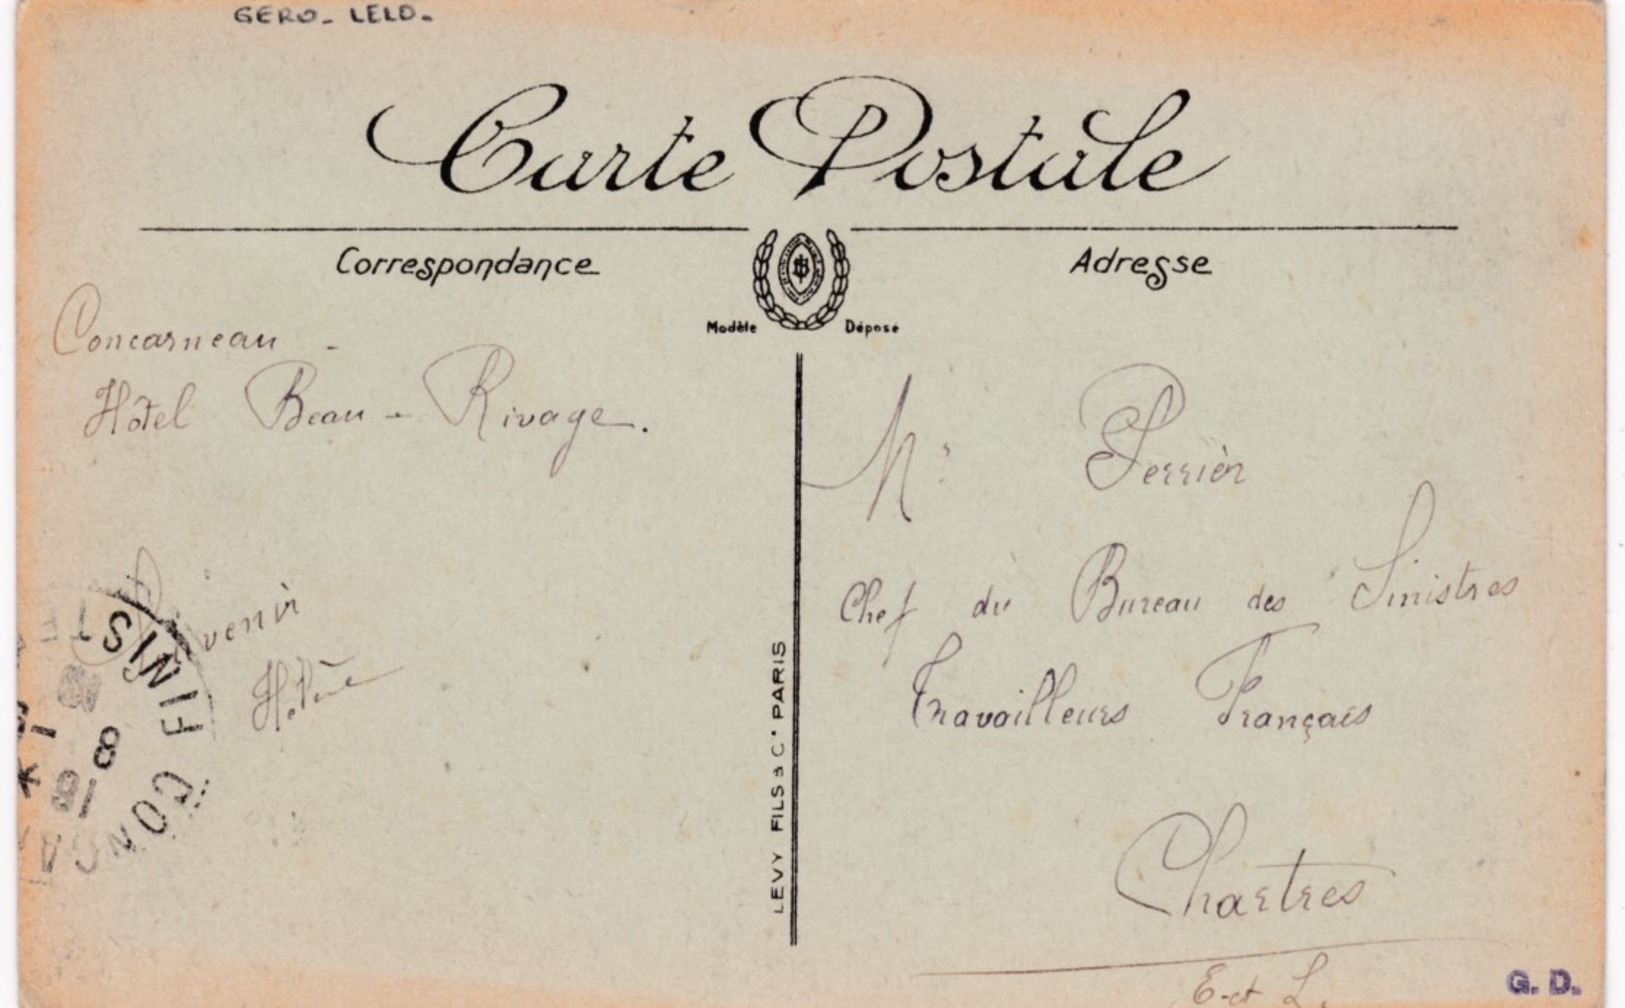 GERO. LELO.
Carte Postale
Correspondance
Adresse
Modèle Déposé
Concarneau -
Hôtel Beau - Rivage.
Souvenir
Hélène
FINIS
8
CONCA
LEVY FILS & Cie PARIS
Mr Perrier
Chef du Bureau des Sinistres
Travailleurs Français
Chartres
E-et L.
G. D.